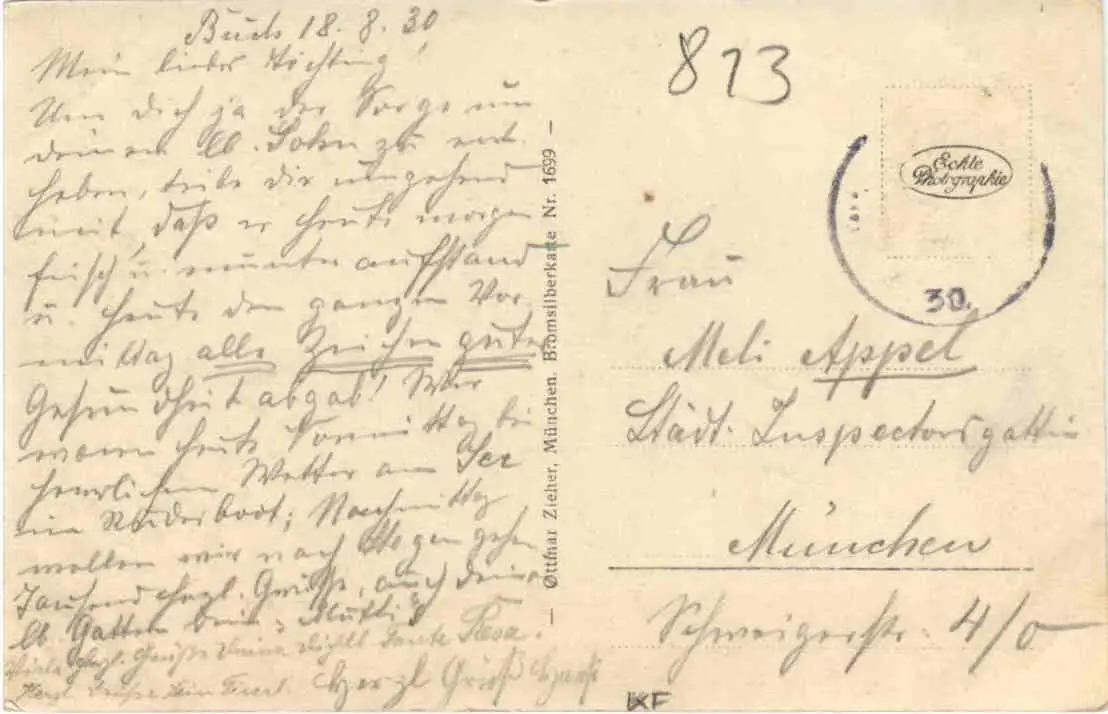 Buch 18. 8. 30
Mein liebes Töchting!
Um dich ja der Sorge um
deinen lb. Sohn zu ent-
heben, teile dir umgehend
mit, daß er heute morgen
frisch u. munter aufstand
u. heute den ganzen Vor-
mittag alle Zeichen guter
Gesundheit abgab! Wir
waren heute Vormittag bei
herrlichem Wetter am See
im Ruderboot; Nachmittag
wollen wir nach Stegen gehen
Tausend hrzl. Grüsse, auch deinem
lb. Gatten deine Mutti
Viele hrzl. Grüße Tante Resa.
Herzl. Grüße dein
Herzl Grüße
— Ottmar Zieher, München. Bromsilberkarte Nr. 1699 —
813
Echte
Photographie
30.
Frau
Meli Appel
Städt. Inspectorsgattin
München
Schweigerstr. 4/0